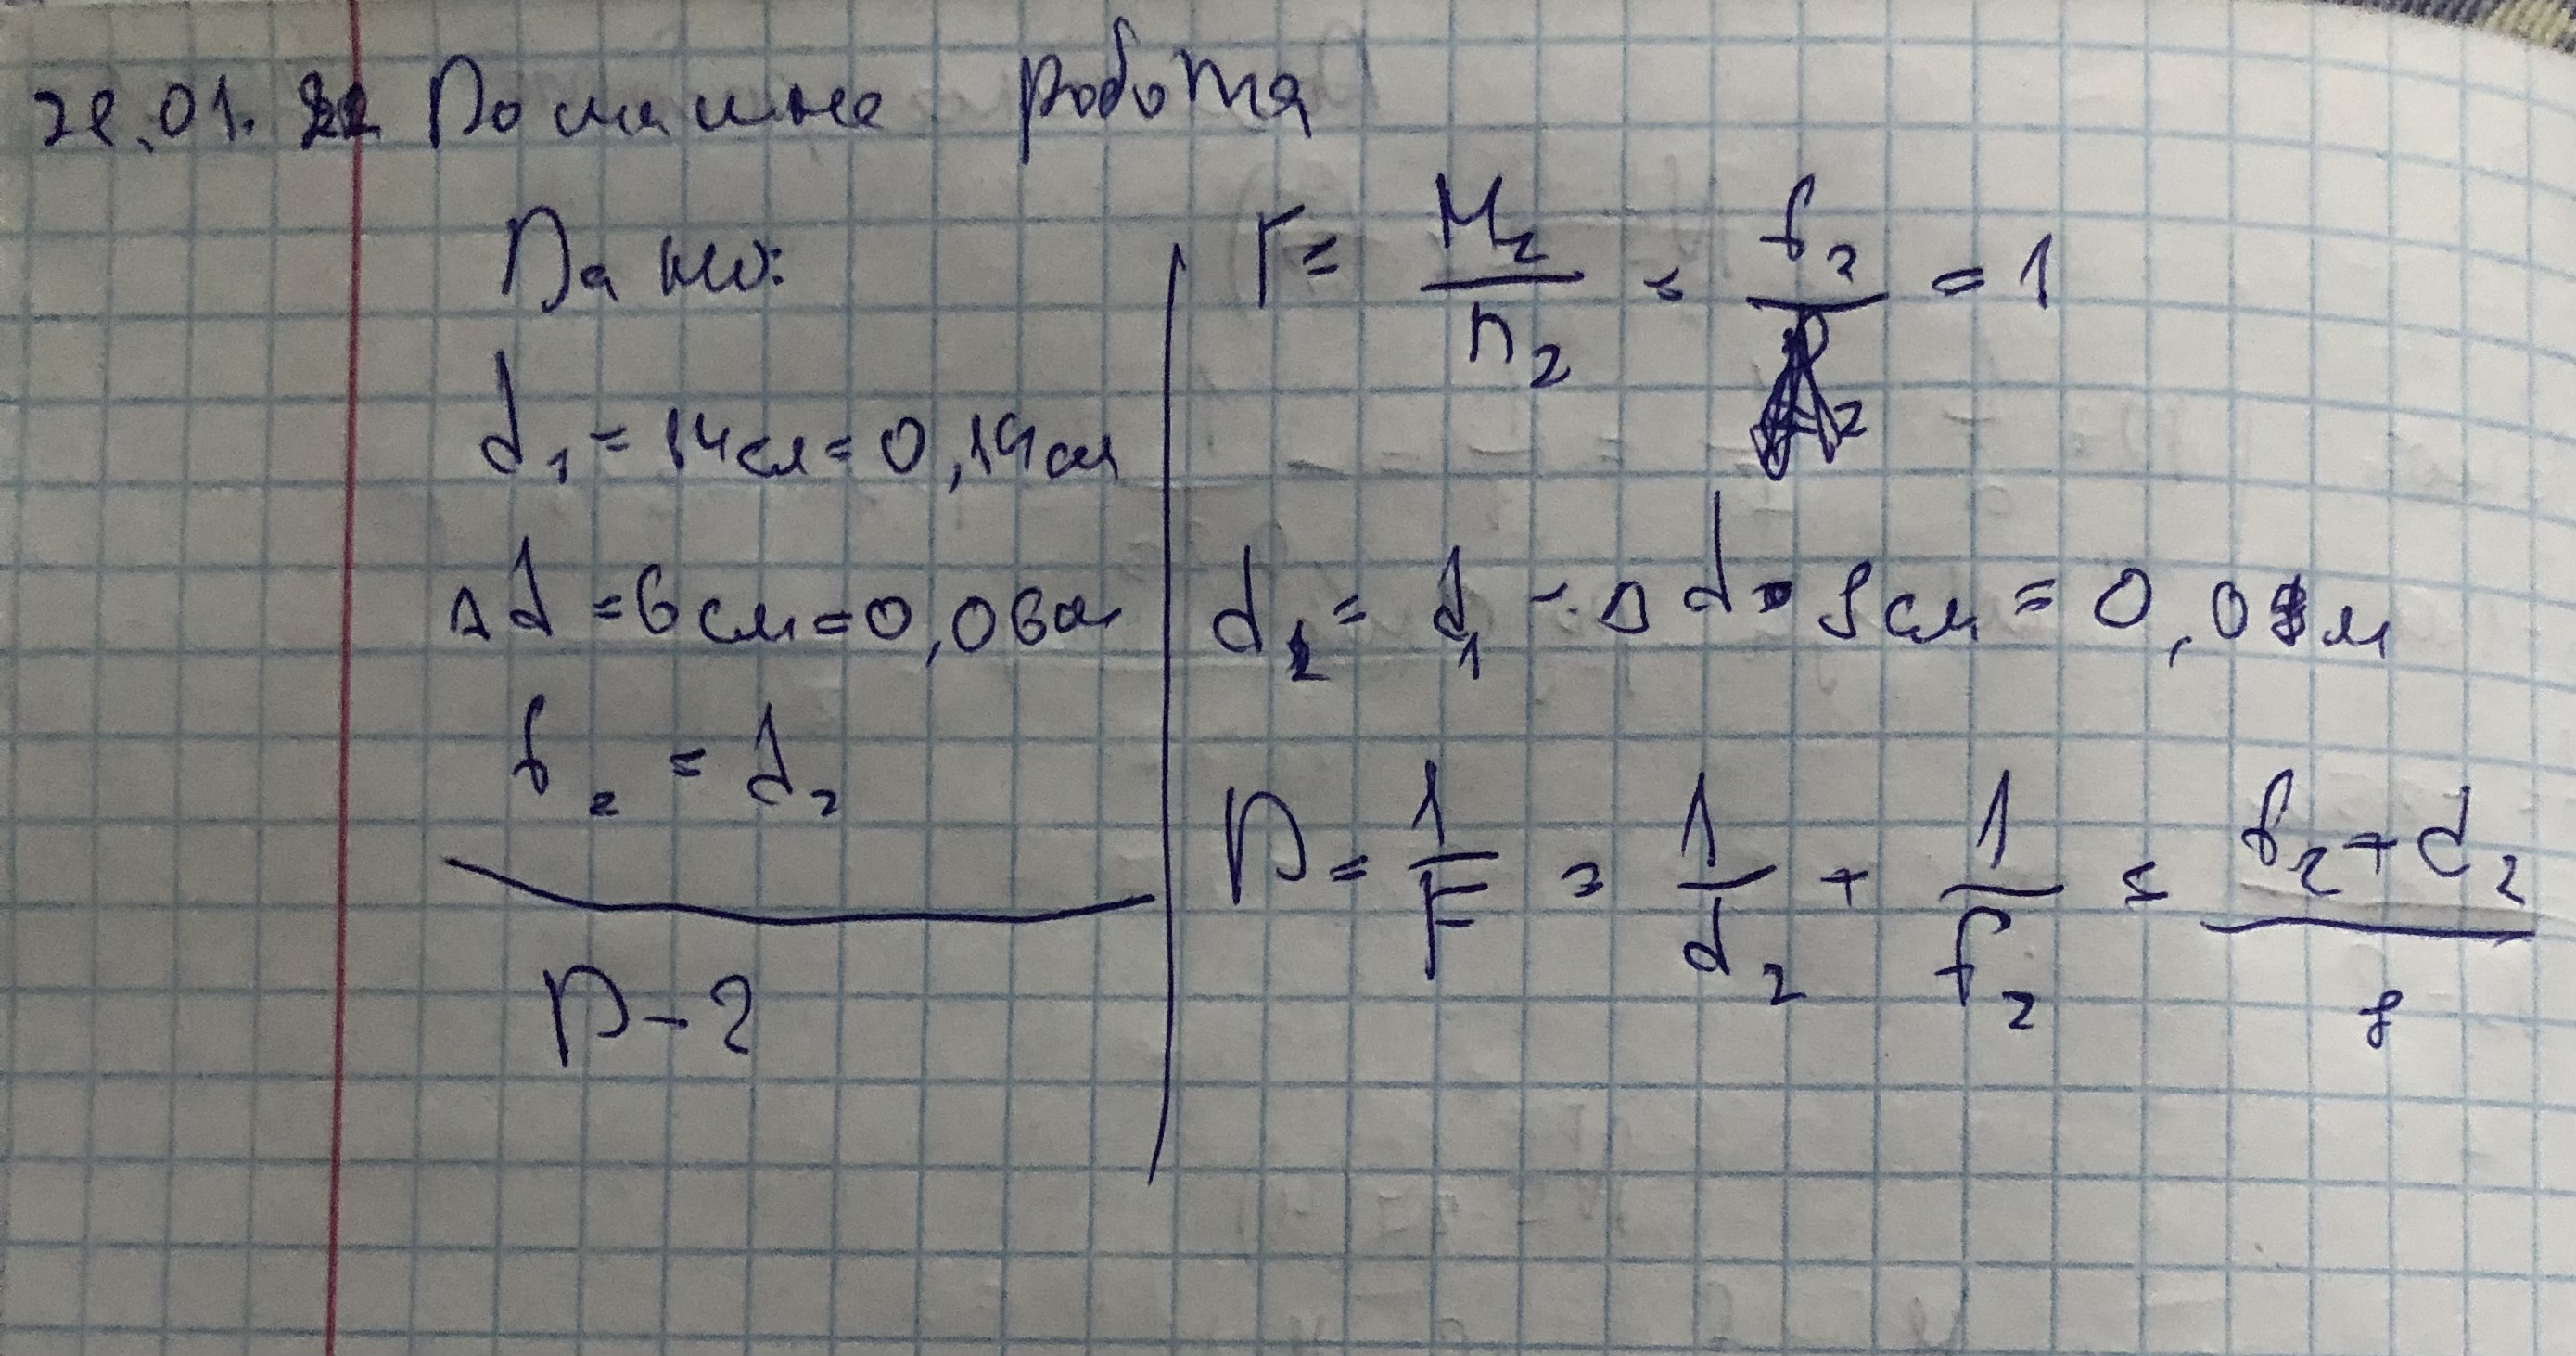 28.01.22 Домашня робота
Дано:
d₁ = 14см = 0,14м
Δd = 6см = 0,06м
f₂ = d₂
D - ?
Γ = H₂/h₂ = f₂/d₂ = 1
d₂ = d₁ - Δd = 8см = 0,08м
D = 1/F = 1/d₂ + 1/f₂ = f₂+d₂/